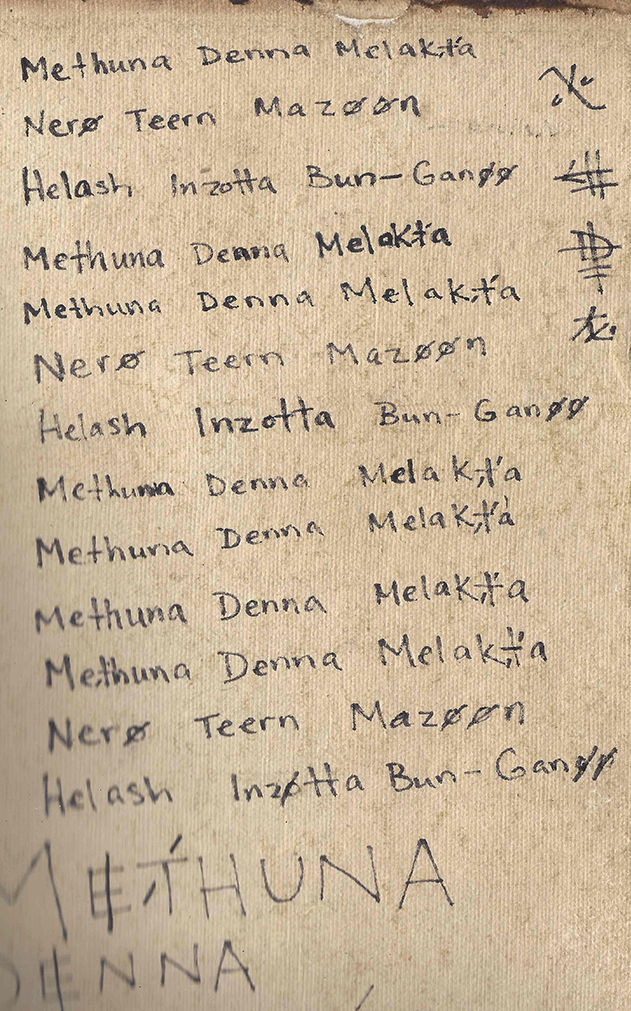 Methuna Denna Melakt́a
Nerø Teern Mazøøn
Helash Inzotta Bun-Ganøø
Methuna Denna Melakta
Methuna Denna Melak,t́a
Nerø Teern Mazøøn
Helash Inzotta Bun-Ganøø
Methuna Denna Melak,t́a
Methuna Denna Melak,t́a
Methuna Denna Melak,t́a
Methuna Denna Melak,t́a
Nerø Teern Mazøøn
Helash Inzøtta Bun-Ganøø
METHUNA
DENNA